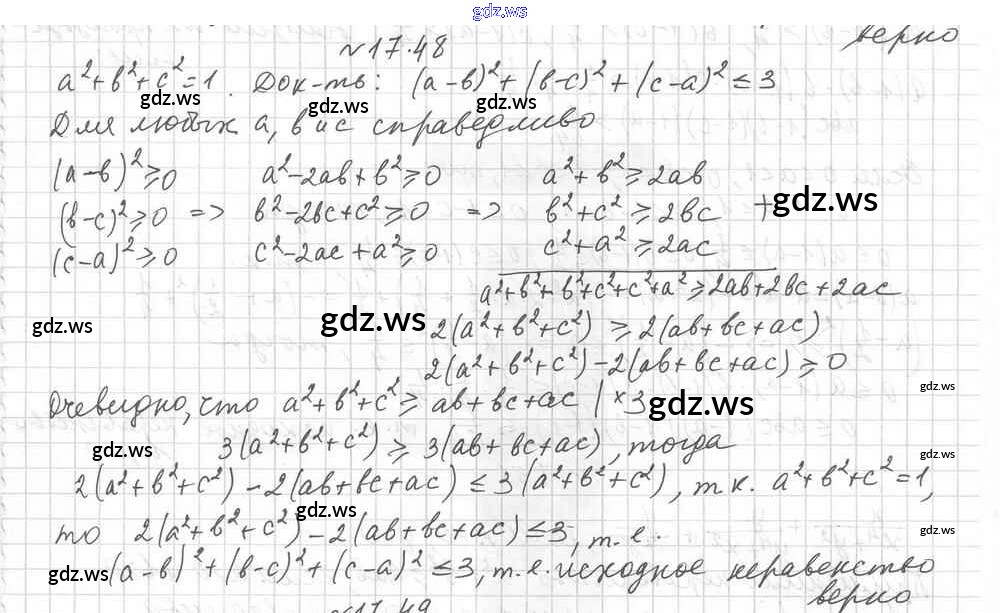 gdz.ws
верно
№17.48
a²+в²+c²=1. Док-ть: (a-в)²+(в-c)²+(c-a)² ≤ 3
gdz.ws gdz.ws gdz.ws
Для любых a, в и с справедливо
(a-в)²≥0 a²-2ab+в²≥0 a²+в²≥2ab
gdz.ws
(в-c)²≥0 => в²-2вc+c²≥0 => в²+c²≥2вc +
(c-a)²≥0 c²-2ac+a²≥0 c²+a²≥2ac
a²+в²+в²+c²+c²+a²≥2ab+2вc+2ac
gdz.ws gdz.ws 2(a²+в²+c²) ≥ 2(ab+вc+ac)
2(a²+в²+c²)-2(ab+вc+ac) ≥ 0
gdz.ws
Очевидно, что a²+в²+c²≥ ab+вc+ac |×3
gdz.ws
3(a²+в²+c²) ≥ 3(ab+вc+ac), тогда
gdz.ws gdz.ws
2(a²+в²+c²)-2(ab+вc+ac) ≤ 3(a²+в²+c²), т.к. a²+в²+c²=1,
gdz.ws
то 2(a²+в²+c²)-2(ab+вc+ac) ≤ 3, т.е.
gdz.ws
gdz.ws (a-в)²+(в-c)²+(c-a)² ≤ 3, т.е. исходное неравенство
верно
№17.49